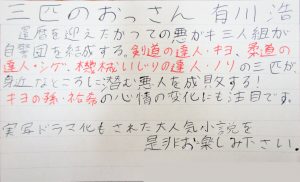 三匹のおっさん 有川 浩
還暦を迎えたかつての悪ガキ三人組が
自警団を結成する。剣道の達人・キヨ、柔道の
達人・シゲ、機械いじりの達人・ノリの三匹が、
身近なところに潜む悪人を成敗する!
キヨの孫・祐希の心情の変化にも注目です。
実写ドラマ化もされた大人気小説を
是非お楽しみ下さい。